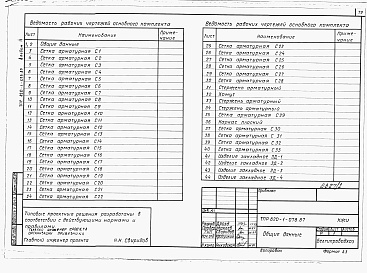 Ведомость рабочих чертежей основного комплекта
Лист Наименование Приме-
чание
1,2 Общие данные
3 Сетка арматурная С1
4 Сетка арматурная С2
5 Сетка арматурная С3
6 Сетка арматурная С4
7 Сетка арматурная С5
8 Сетка арматурная С6
9 Сетка арматурная С7
10 Сетка арматурная С8
11 Сетка арматурная С9
12 Сетка арматурная С10
13 Сетка арматурная С11
14 Сетка арматурная С12
15 Сетка арматурная С13
16 Сетка арматурная С14
17 Сетка арматурная С15
18 Сетка арматурная С16
19 Сетка арматурная С17
20 Сетка арматурная С18
21 Сетка арматурная С19
22 Сетка арматурная С20
23 Сетка арматурная С21
24 Сетка арматурная С22
Типовые проектные решения разработаны в
соответствии с действующими нормами и
правилами
Главный инженер проекта Н.М. Свиридов
Ведомость рабочих чертежей основного комплекта
Лист Наименование Приме-
чание
25 Сетка арматурная С23
26 Сетка арматурная С24
27 Сетка арматурная С25
28 Сетка арматурная С26
29 Сетка арматурная С27
30 Сетка арматурная С28
31 Стержень арматурный
32 Хомут
33 Стержень арматурный
34 Стержень арматурный
35 Сетка арматурная С29
36 Каркас плоский
37 Сетка арматурная С30
38 Сетка арматурная С31
39 Сетка арматурная С32
40 Сетка арматурная С33
41 Изделие закладное ЗД-1
42 Изделие закладное ЗД-2
43 Изделие закладное ЗД-3
44 Изделие закладное ЗД-4
Привязан
ТПР 820-1-078.87 КЖИ
Общие данные
Копировал Формат А3